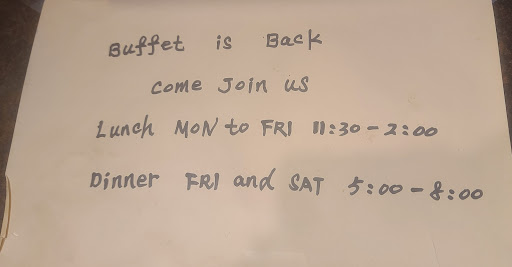 Buffet is Back
come Join us
Lunch MON to FRI 11:30 - 2:00
Dinner FRI and SAT 5:00 - 8:00